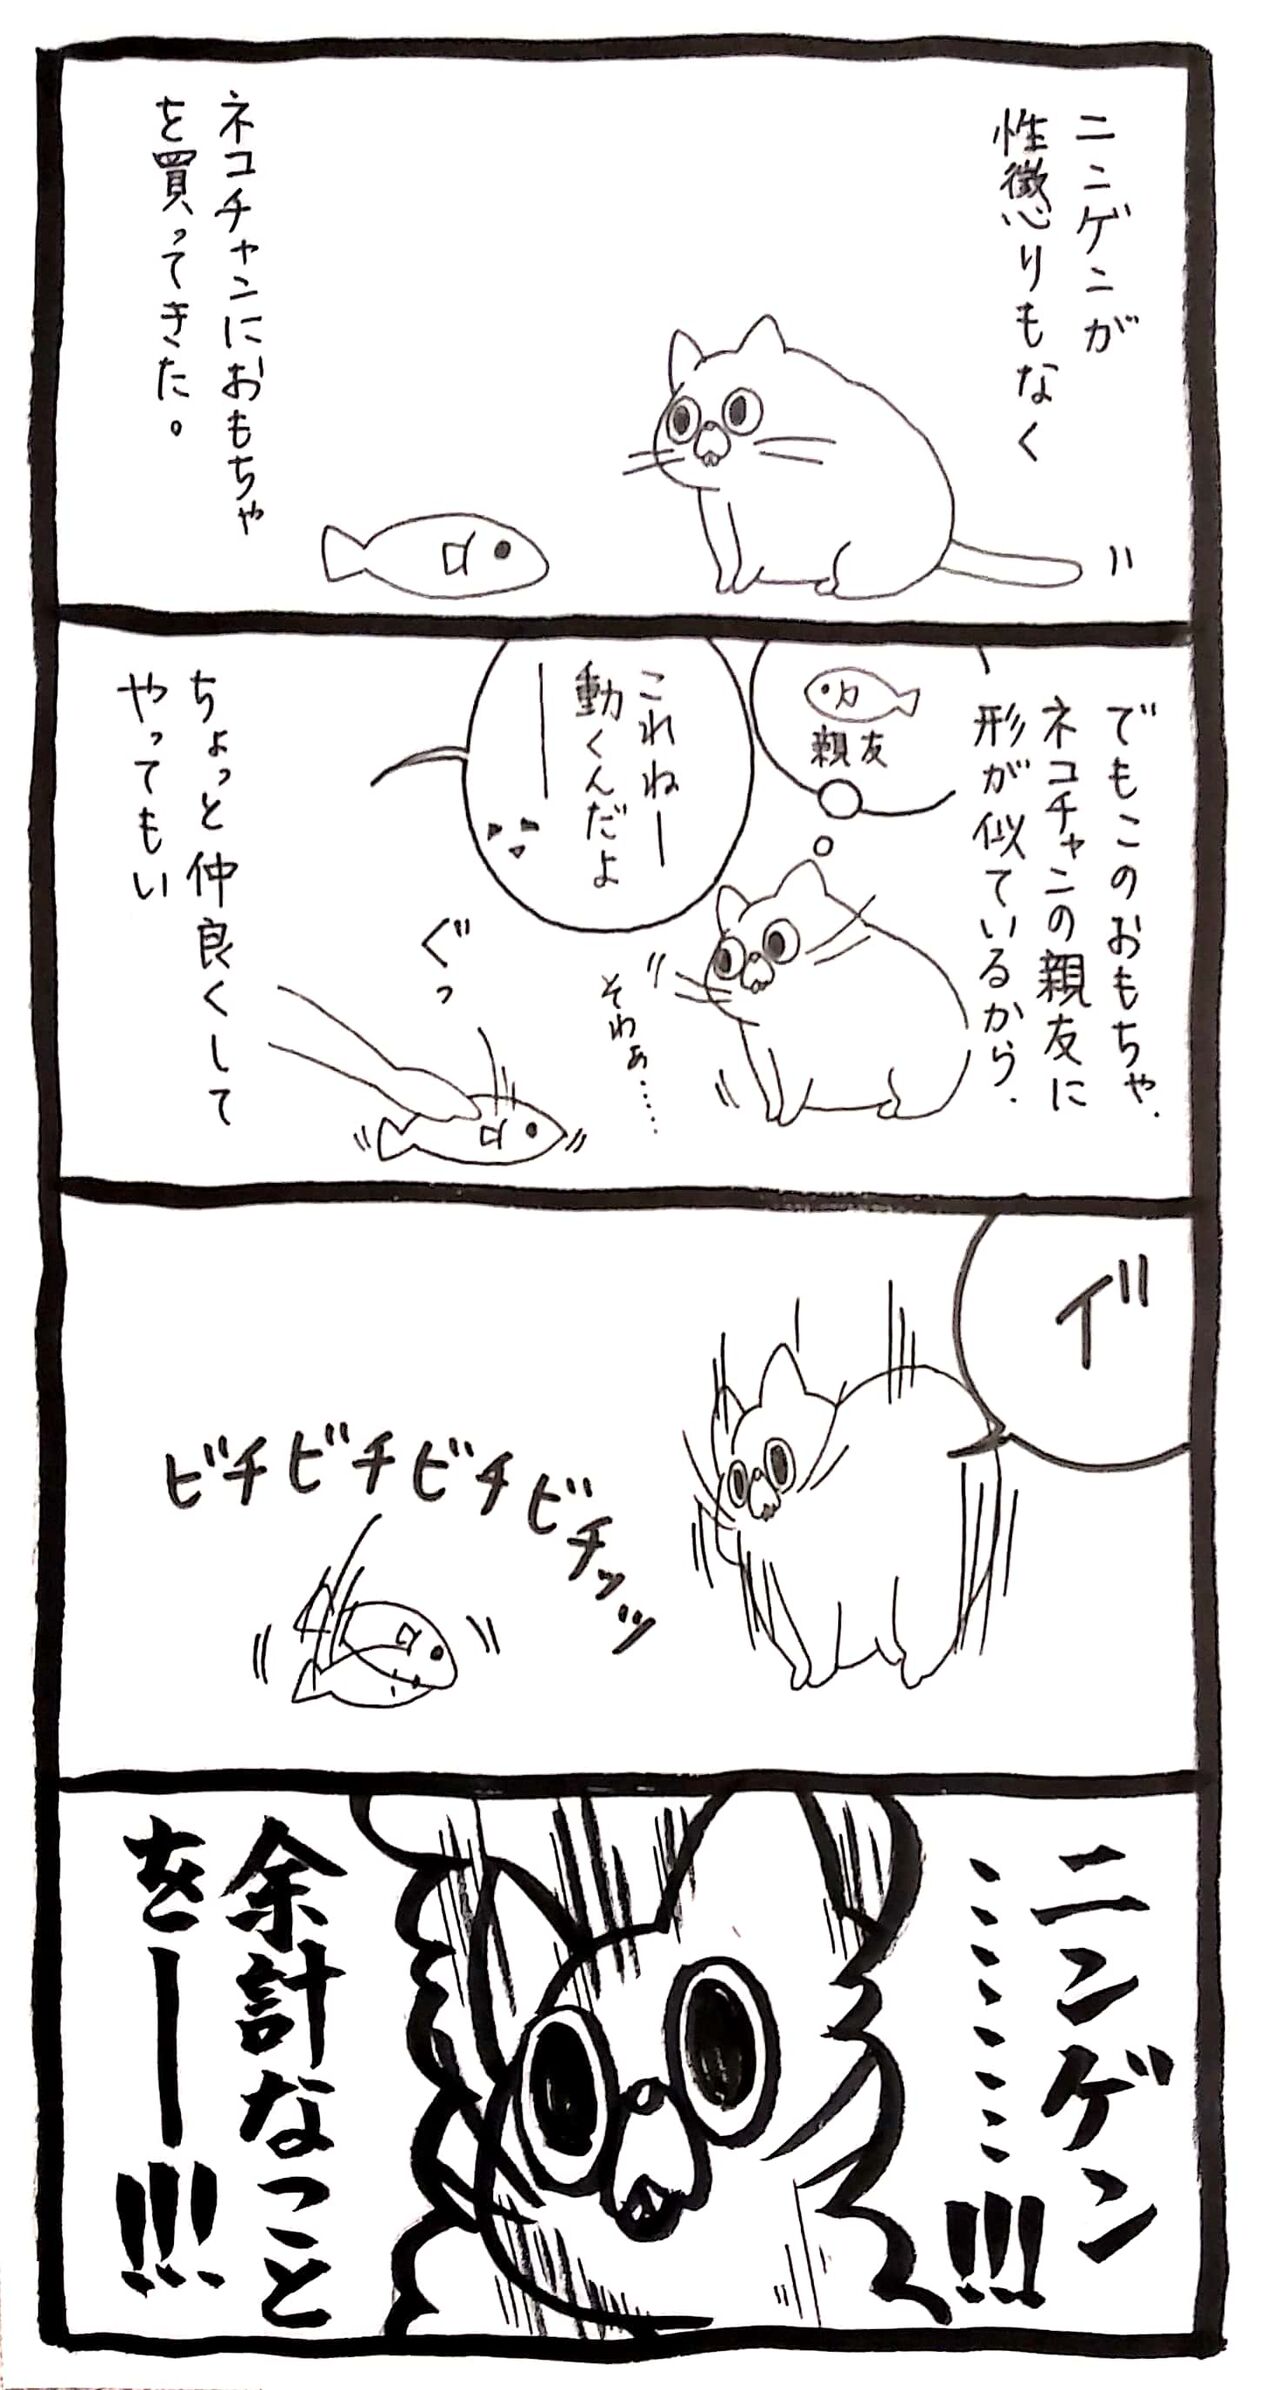 ニンゲンが
性懲りもなく
ネコチャンにおもちゃ
を買ってきた。
でもこのおもちゃ、
ネコチャンの親友に
形が似ているから、
親友
これねー
動くんだよ
ー
そわぁ……
ぐっ
ちょっと仲良くして
やってもい
イ゛
ビチビチビチビチッッ
ニンゲン
……!!!
余計なこと
をー!!!